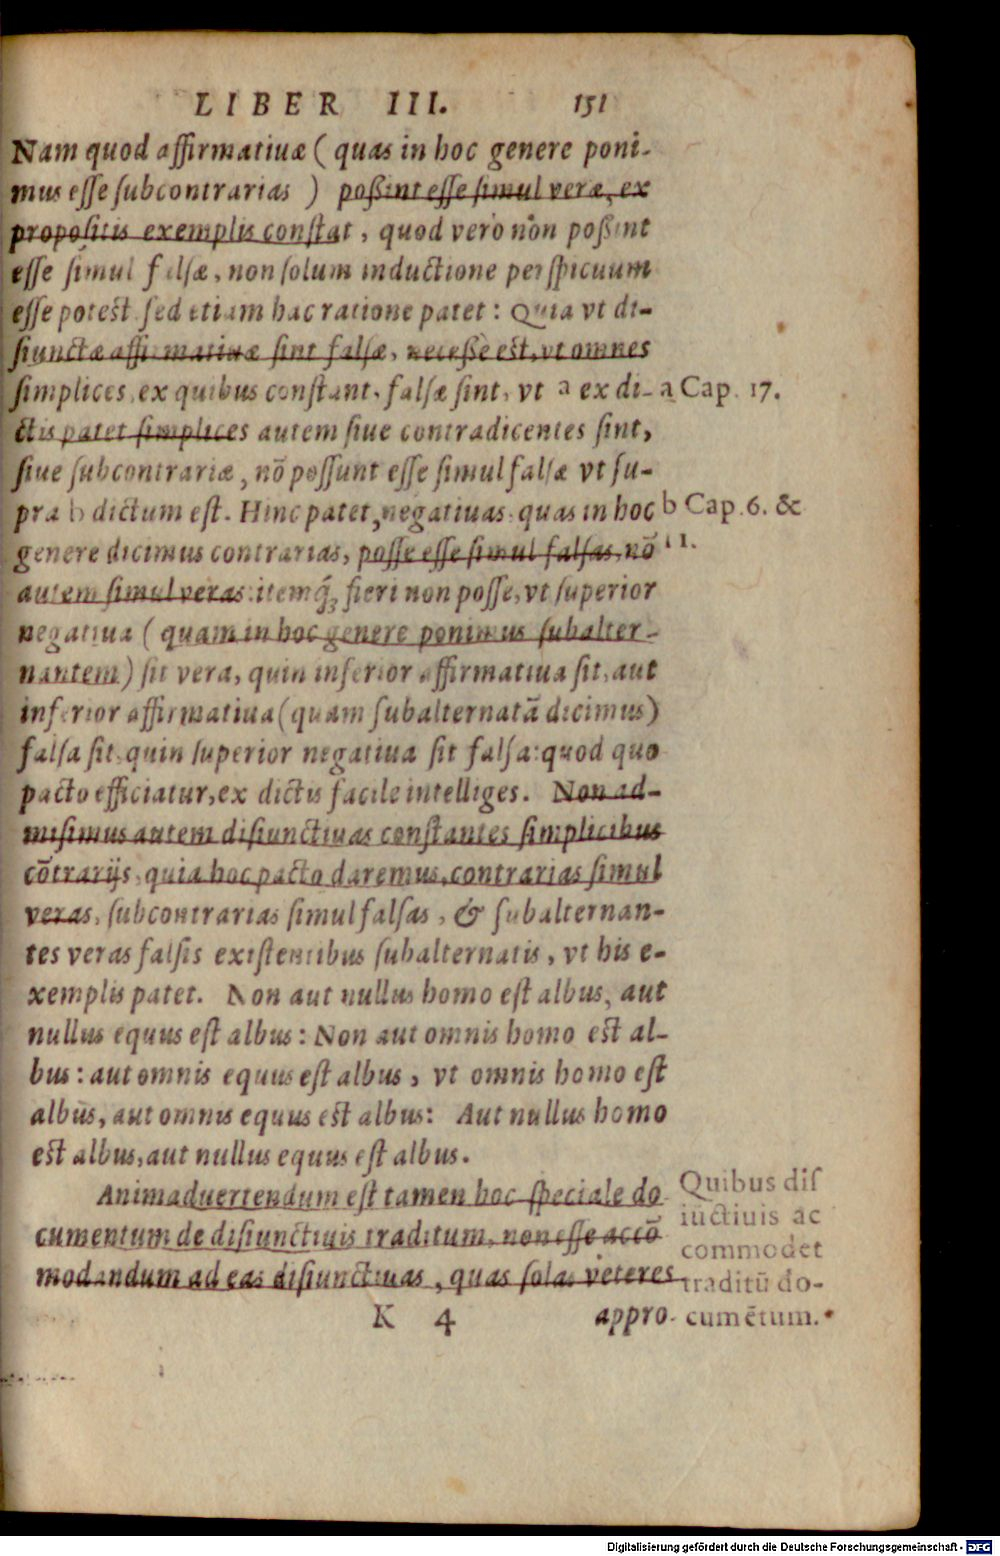 LIBER III. 151
Nam quod affirmatiuæ ( quas in hoc genere poni-
mus esse subcontrarias ) poßint esse simul veræ, ex
propositis exemplis constat, quod verò nõn poßint
esse simul falsæ, non solum inductione perspicuum
esse potest sed etiam hac ratione patet: Quia vt di-
siunctæ affirmatiuæ sint falsæ, necesse est, vt omnes
simplices, ex quibus constant, falsæ sint, vt a ex di- a Cap. 17.
ctis patet simplices autem siue contradicentes sint,
siue subcontrariæ, nõ possunt esse simul falsæ vt su-
pra b dictum est. Hinc patet, negatiuas quas in hoc b Cap. 6. &
genere dicimus contrarias, posse esse simul falsas, nõ 11.
autem simul veras: itemq́; fieri non posse, vt superior
negatiua ( quam in hoc genere ponimus subalter-
nantem) sit vera, quin inferior affirmatiua sit, aut
inferior affirmatiua (quam subalternatã dicimus)
falsa sit, quin superior negatiua sit falsa: quod quo
pacto efficiatur, ex dictis facile intelliges. Non ad-
misimus autem disiunctiuas constantes simplicibus
cõtrarijs, quia hoc pacto daremus, contrarias simul
veras, subcontrarias simul falsas, & subalternan-
tes veras falsis existentibus subalternatis, vt his e-
xemplis patet. Non aut nullus homo est albus, aut
nullus equus est albus: Non aut omnis homo est al-
bus: aut omnis equus est albus, vt omnis homo est
albus, aut omnis equus est albus: Aut nullus homo
est albus, aut nullus equus est albus.
Animaduertendum est tamen hoc speciale do
cumentum de disiunctiuis traditum, non esse accõ
modandum ad eas disiunctiuas, quas solas veteres
Quibus dis
iũctiuis ac
commodet
traditũ do-
cumẽtum.
K 4 appro-
Digitalisierung gefördert durch die Deutsche Forschungsgemeinschaft - DFG